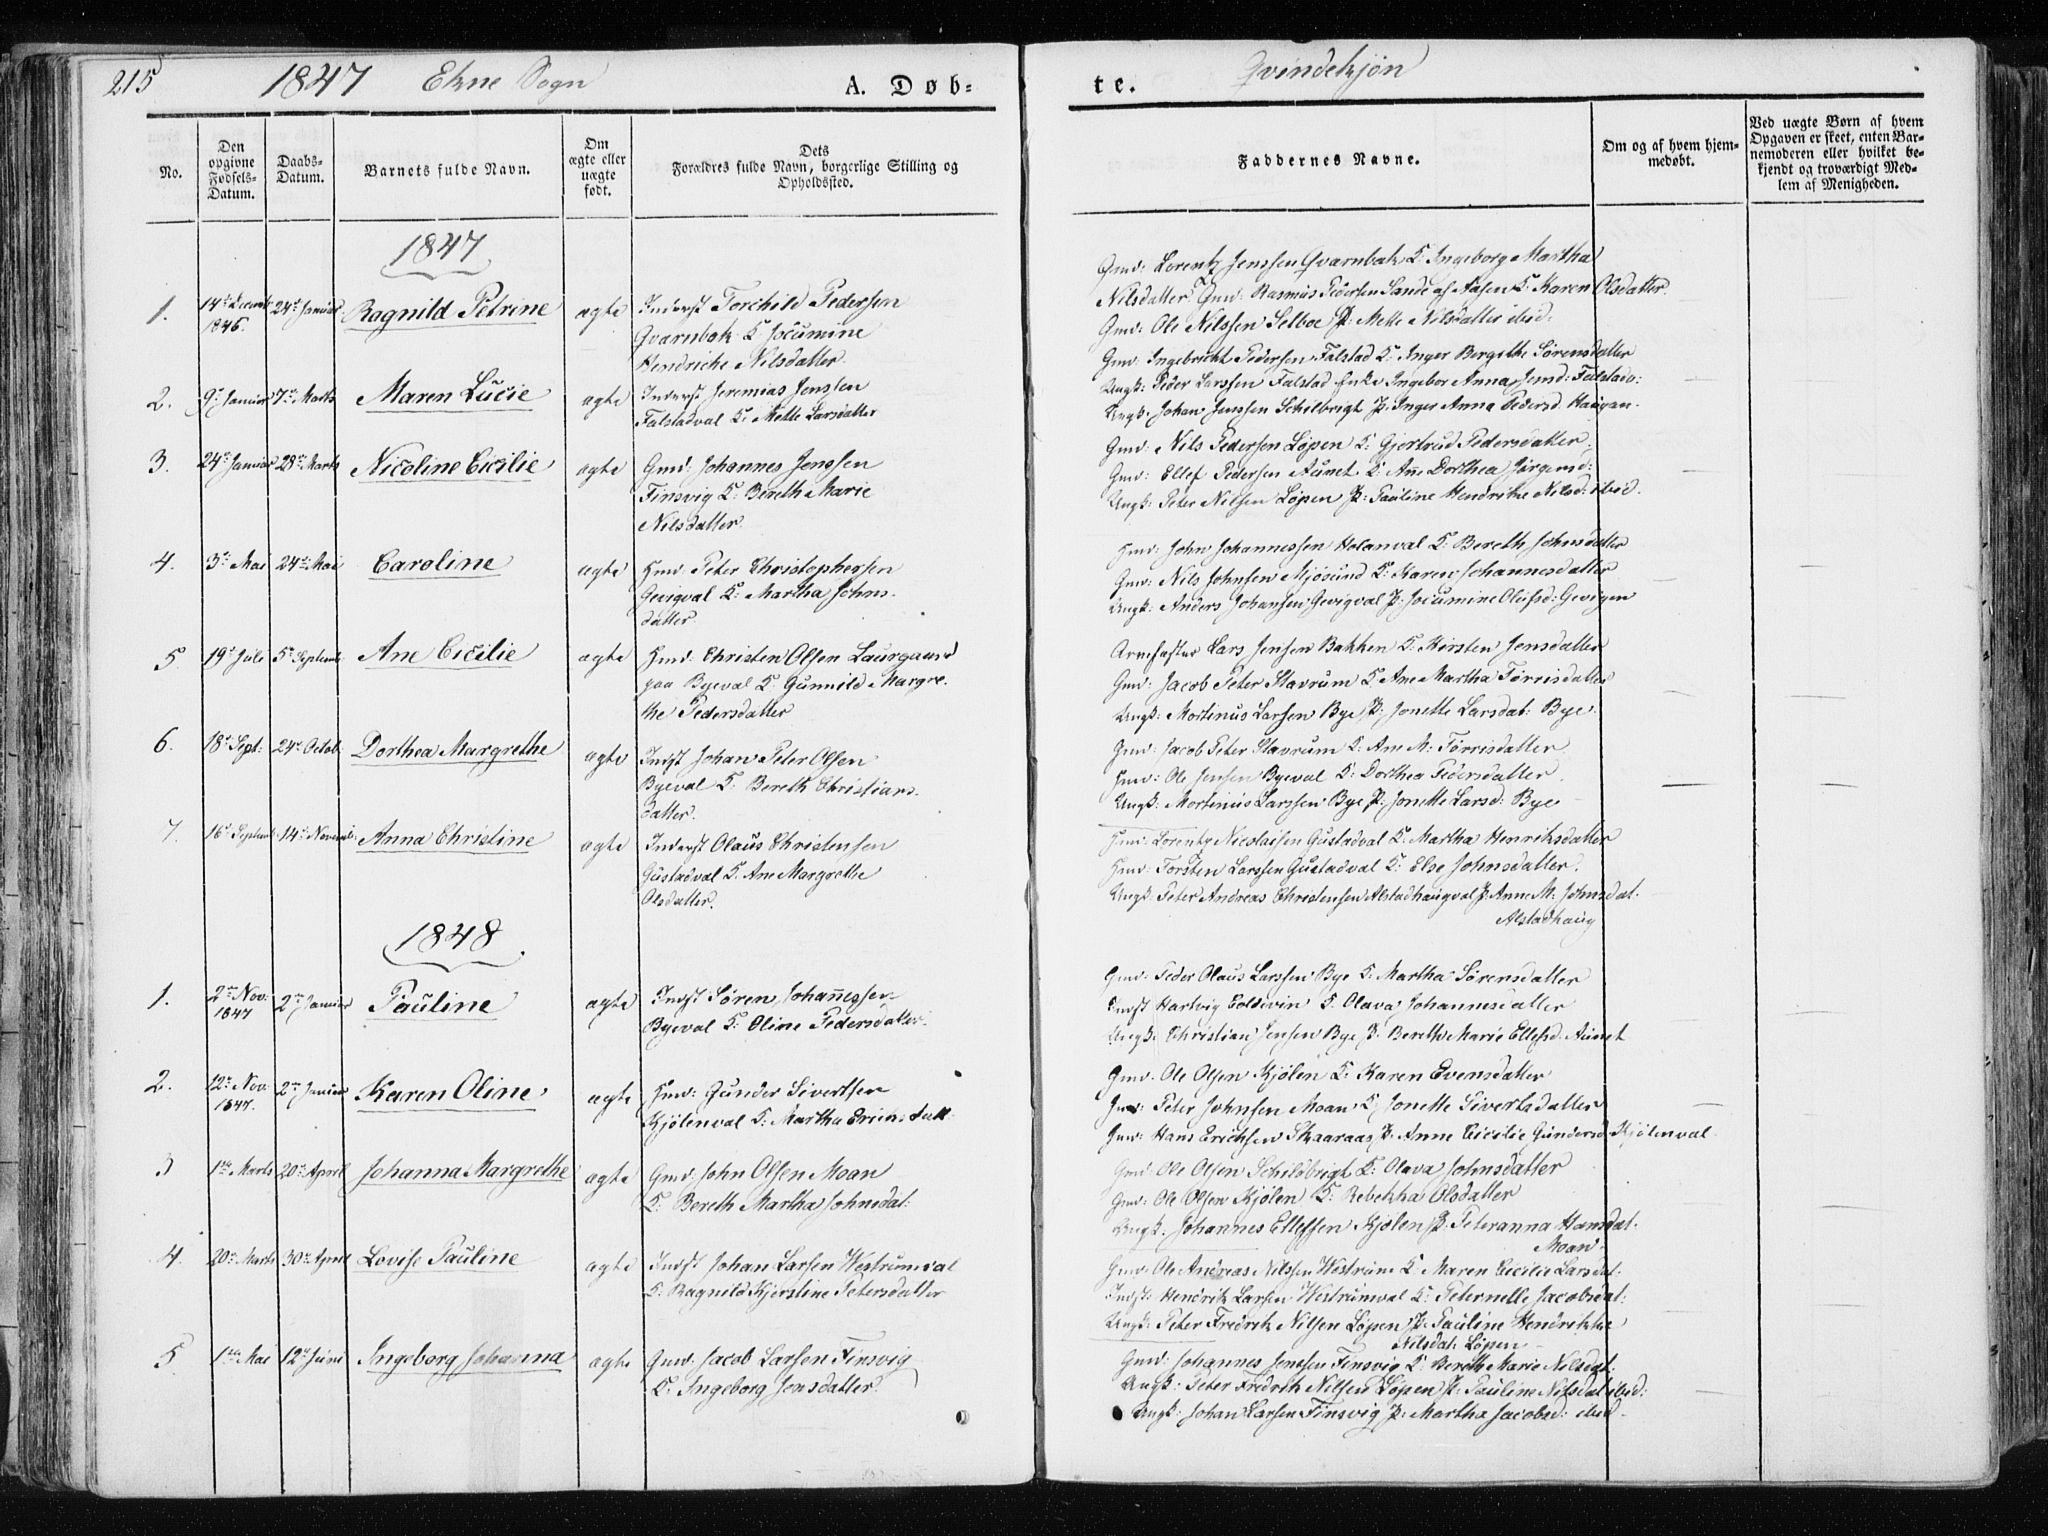 215 1847 Ekne Sogn A. Døb-
No.
Den opgivne Fødsels-Datum.
Daabs-Datum.
Barnets fulde Navn.
Om ægte eller uægte født.
Dets Forældres fulde Navn, borgerlige Stilling og Opholdssted.
1847
1. 14de Decemb 1846. 24de Januar Ragnild Petrine ægte Inderst Torchild Pedersen
Qvarnbak K Jocumine
Hendriche Nilsdatter.
2. 9de Januar 7de Marts Maren Lucie ægte Inderst Jeremias Jenssen
Falstadval K. Mette Larsdatter
3. 24de Januar 28de Marts Nicoline Cicilie ægte Gmd: Johannes Jenssen
Finsvig K: Bereth Marie
Nilsdatter
4. 3die Mai 24de Mai Caroline ægte Hmd: Peter Christophersen
Gevigval K: Martha Johns-
datter
5 19de Juli 5te Septemb Ane Cicilie ægte Hmd: Christen Olsen Laurgaard
paa Byeval K. Gunnild Margre-
the Pedersdatter
6. 18de Sept: 24de Octob: Dorthea Margrethe ægte Indst Johan Peter Olsen
Byeval K: Bereth Christians-
datter.
7. 16de Septemb 14de Novemb: Anna Christine ægte Inderst Olaus Christensen
Gustadval K. Ane Margrethe
Olsdatter.
1848.
1. 2den Nov: 1847 2den Januar Pauline ægte Indst Sören Johannessen
Byeval K: Oline Pedersdatter.
2. 12te Nov: 1847. 2den Januar Karen Oline ægte Hmd: Gunder Sivertsen
Kjölenval K: Martha Erichsdatt:
3 1ste Marts 20de April Johanna Margrethe ægte Gmd: John Olsen Moan
K: Bereth Martha Johnsdat:
4. 20de Marts 30de April Lovise Pauline ægte Indst Johan Larsen Westrumval
K: Ragnild Kjerstine Petersdatter
5 1ste Mai 12te Juni Ingeborg Johanna ægte Gmd: Jacob Larsen Finsvig
K. Ingeborg Jensdatter.
te. Qvindekjøn
Faddernes Navne.
Om og af hvem hjem-
medøbt.
Ved uægte Børn af hvem
Opgaven er skeet, enten Bar-
nemoderen eller hvilket be-
kjendt og troværdigt Med-
lem af Menigheden.
Gmd: Lorentz Jenssen Qvarnbak K. Ingeborg Martha
Nilsdatter. Gmd: Rasmus Pedersen Sande af Aasen K. Karen Olsdatter.
Gmd: Ole Nilssen Selboe P: Mette Nilsdatter ibid.
Gmd: Ingebricht Pedersen Falstad K. Inger Bergithe Sørensdatter
Ungk: Peder Larssen Falstad Enke Ingebor Anna Jensd: Falstadv:
Ungk: Johan Jenssen Schilbrigt P. Inger Anna Pedersd. Haugan.
Gmd: Nils Pedersen Løpen K: Gjertrud Pedersdatter,
Gmd: Ellef Pedersen Aunet K. Ane Dorthea Jørgensd:
Ungk: Peter Nilsen Løpen P: Pauline Hendrike Nilsd: ibid.
Hmd: John Johannessen Holanval K: Bereth Johnsdatter
Gmd: Nils Johnsen Mjösund K: Karen Johannesdatter
Ungk: Anders Johansen Gevigval P: Jocumine Olufsd: Gevigen
Arnefaster Lars Jensen Bakken K: Kirsten Jensdatter
Gmd: Jacob Peter Stavrum K: Ane Martha Törrisdatter
Ungk: Mortinus Larsen Bye P: Jonette Larsdat: Bye.
Gmd: Jacob Peter Stavrum K: Ane M: Törrisdatter
Hmd: Ole Jensen Byeval K: Dorthea Pedersdatter.
Ungk: Mortinus Larssen Bye P: Jonette Larsd: Bye
Hmd: Lorentz Nicolaisen Gustadval K: Martha Henriksdatter
Hmd: Torsten Larssen Gustadval K: Else Johnsdatter.
Ungk: Peter Andreas Christensen Alstadhaugval P: Anne M: Johnsdat:
Alstadhaug
Gmd: Peder Olaus Larssen Bye K: Martha Sörensdatter
Indst Hartvig Coldevin K. Olava Johannesdatter
Ungk: Christian Jensen Bye P. Bereth Marie Ellefsd. Aunet
Gmd: Ole Olsen Kjölen K: Karen Evensdatter
Gmd: Peter Johnsen Moan K. Jonette Sivertsdatter
Gmd: Hans Erichsen Skaaraas P. Anne Cicilie Gundersd Kjölenval
Gmd: Ole Olsen Schilbrigt K: Olava Johnsdatter
Gmd: Ole Olsen Kjölen K: Rebekka Olsdatter
Ungk: Johannes Ellefsen Kjölen P: Peteranna Hansdat:
Moan.
Gmd: Ole Andreas Nilssen Westrum K. Maren Cicilie Larsdat:
Indst: Hendrik Larsen Westrumval K: Peternelle Jacobsdat:
Ungk: Peter Fredrik Nilsen Løpen P: Pauline Hendrikke
Nilsdat: Løpen
Gmd: Johannes Jenssen Finsvig K: Bereth Marie Nilsdat:
Ungk: Peter Fredrik Nilsen Løpen P: Pauline Nilsdat ibid:
Ungk: Johan Larsen Finsvig P: Martha Jacobsd: ibid